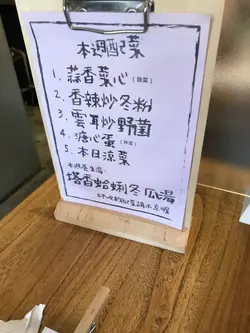 本週配菜
1. 蒜香菜心(蔬菜)
2. 香辣炒冬粉
3. 雲耳炒野菌
4. 溏心蛋(蔬菜)
5. 本日涼菜
本週養生湯:
塔香蛤蜊冬瓜湯